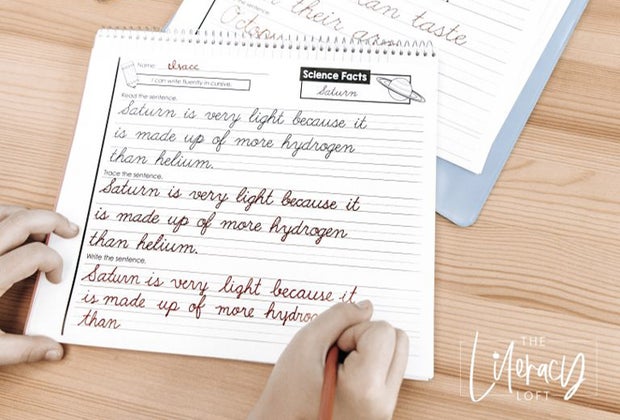 can taste
sentence.
Octopu
their arms
Name: Grace
I can write fluently in cursive.
Science Facts
Saturn
Read the sentence.
Saturn is very light because it
is made up of more hydrogen
than helium.
Trace the sentence.
Saturn is very light because it
is made up of more hydrogen
than helium.
Write the sentence.
Saturn is very light because it
is made up of more hydrog
than
THE
Literacy
LOFT